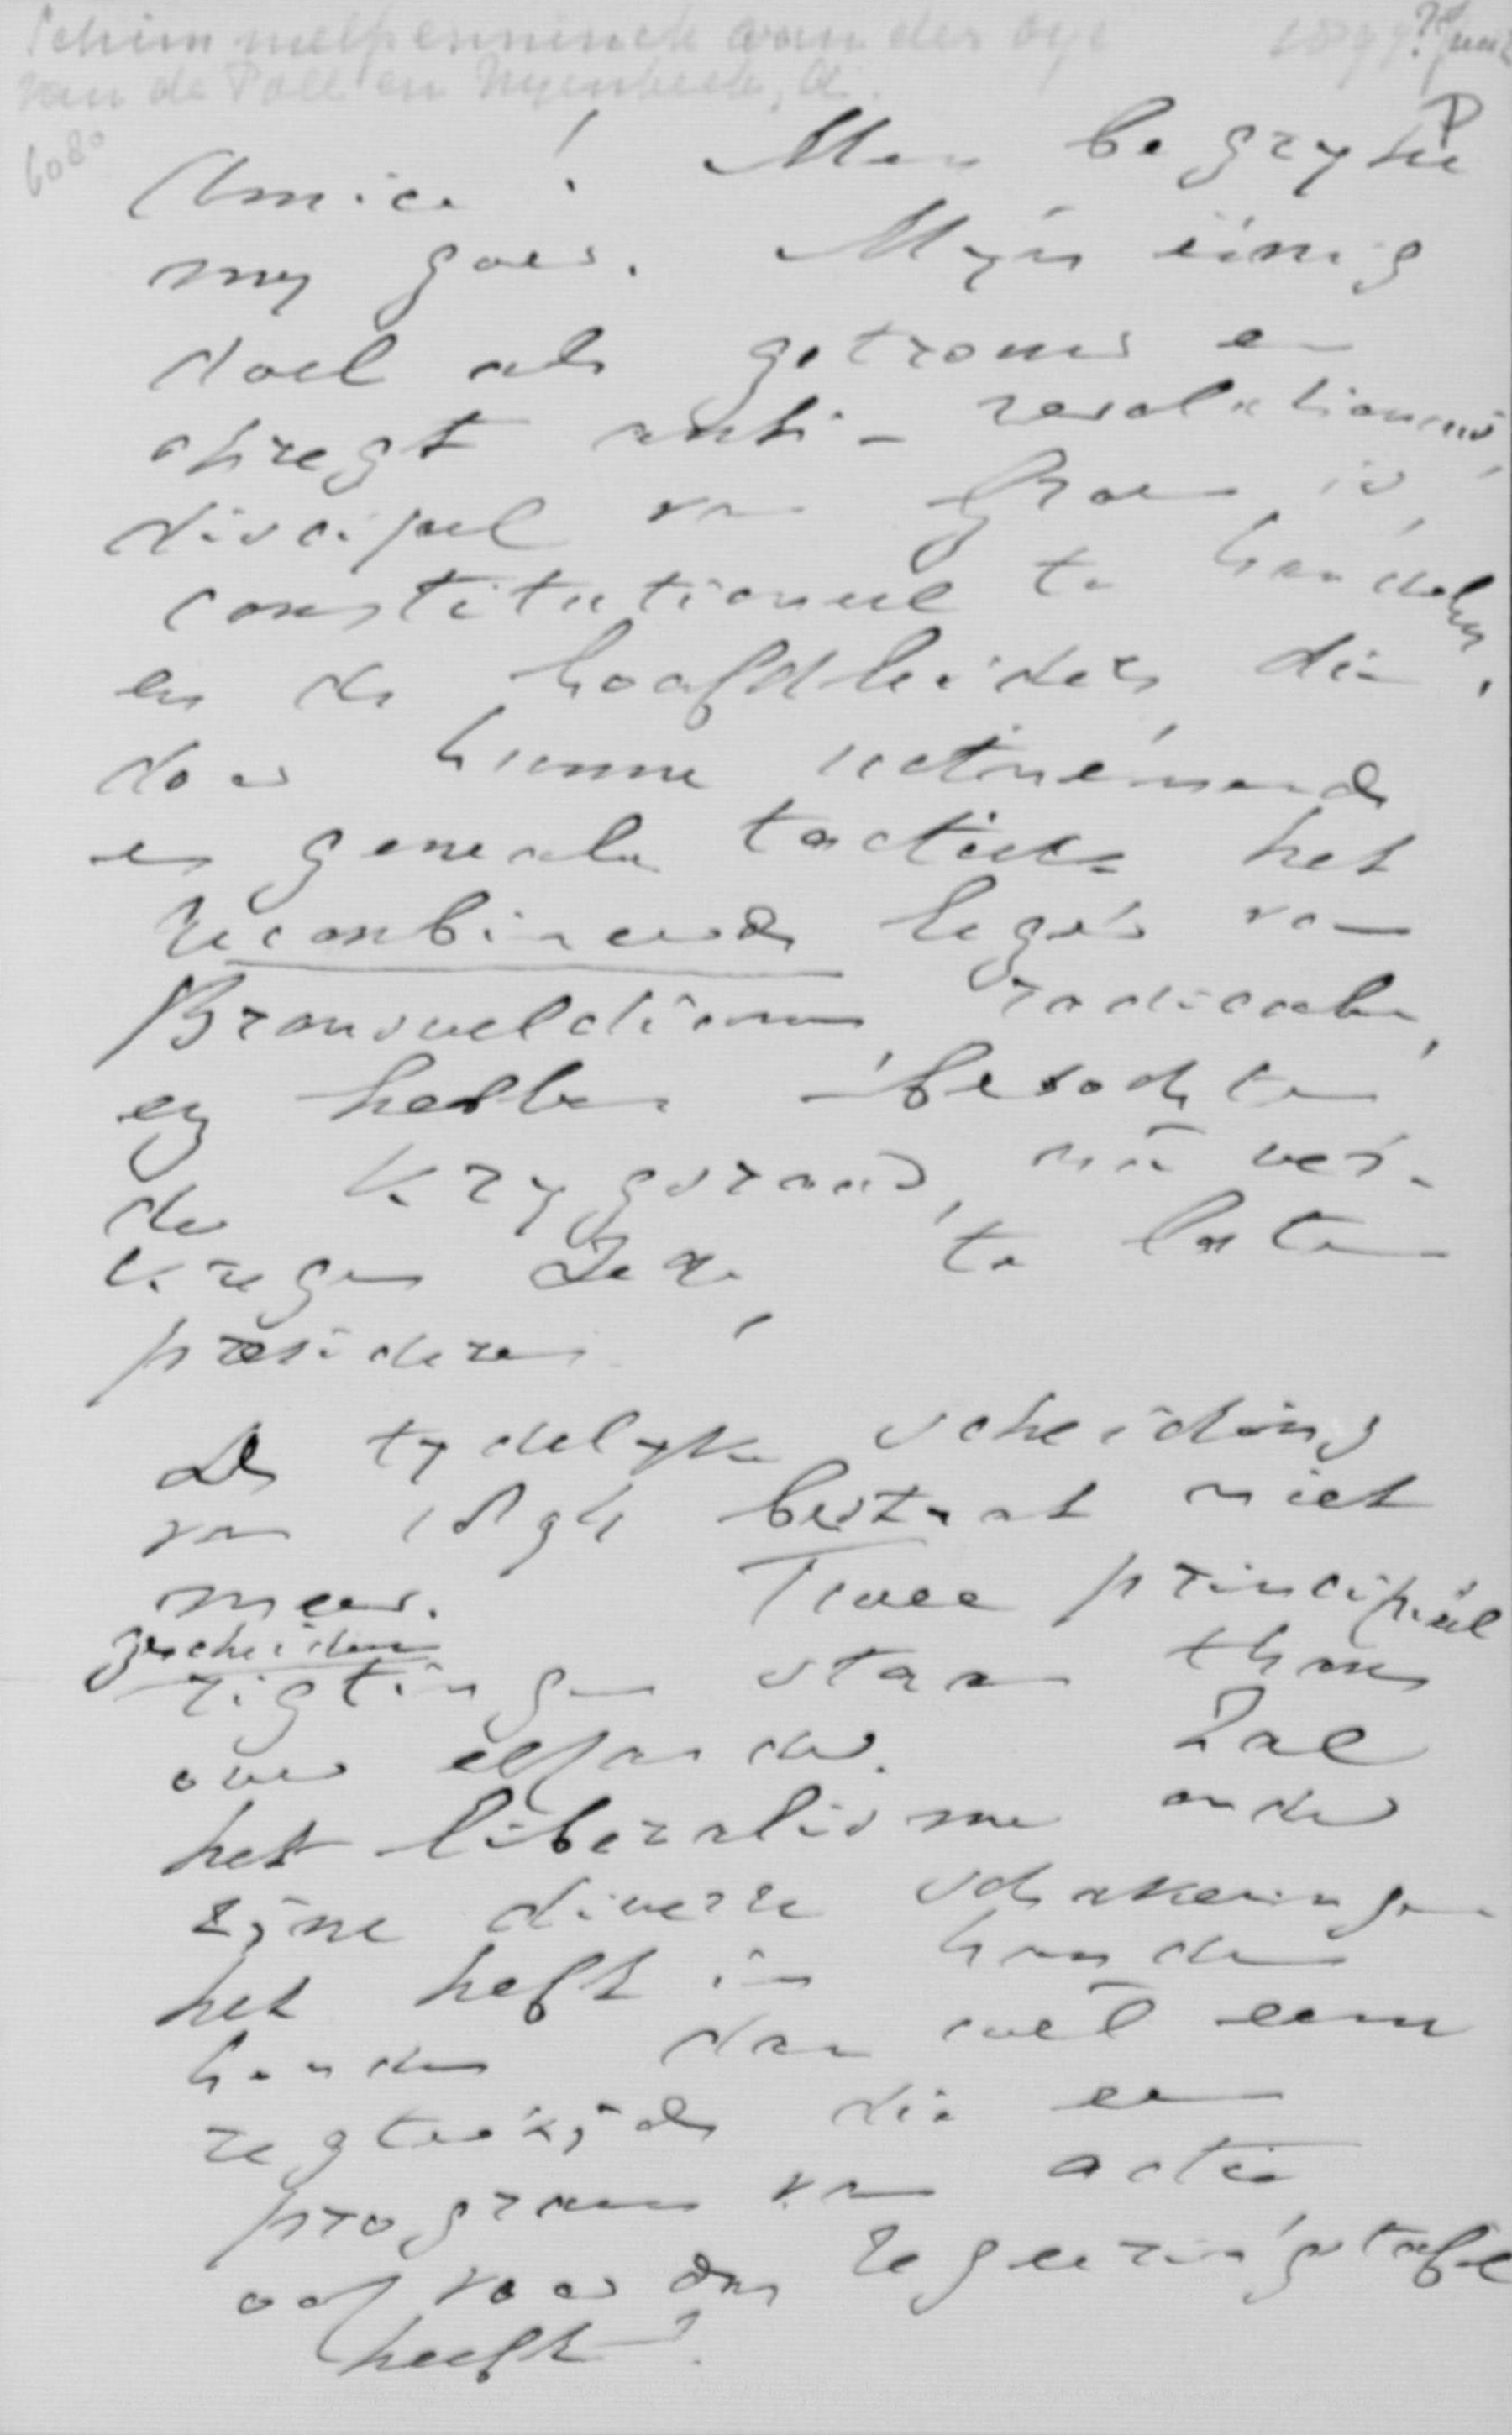 Schimmelpenninck van der Oye 1897? Juni
van de Poll en Nyenbeek, A.
6080
Amice! Men begrype
my goed. Myn eenig
doel als getrouw en
opregt anti-revolutionair,
discipel van Groen is,
constitutioneel te handelen,
en de hoofdleiders die
door hunne uitnemende
en generale tactiek het
recombineerde leger van
Bronsveldianen, radicalen,
en hebben bezochten
de Krygsraad, niet ver-
kregen Zege, te laten
presideren!
De tydelyke scheiding
van 1894 bestaat niet
meer. Twee principieel
gescheiden
rigtingen staan thans
over elkander. Zal
het liberalisme onder
zijne diverse schakeringen
het heft in handen
houden dan wel eene
regterzijde die een
program van actie
ook voor den regeeringstafel
heeft?